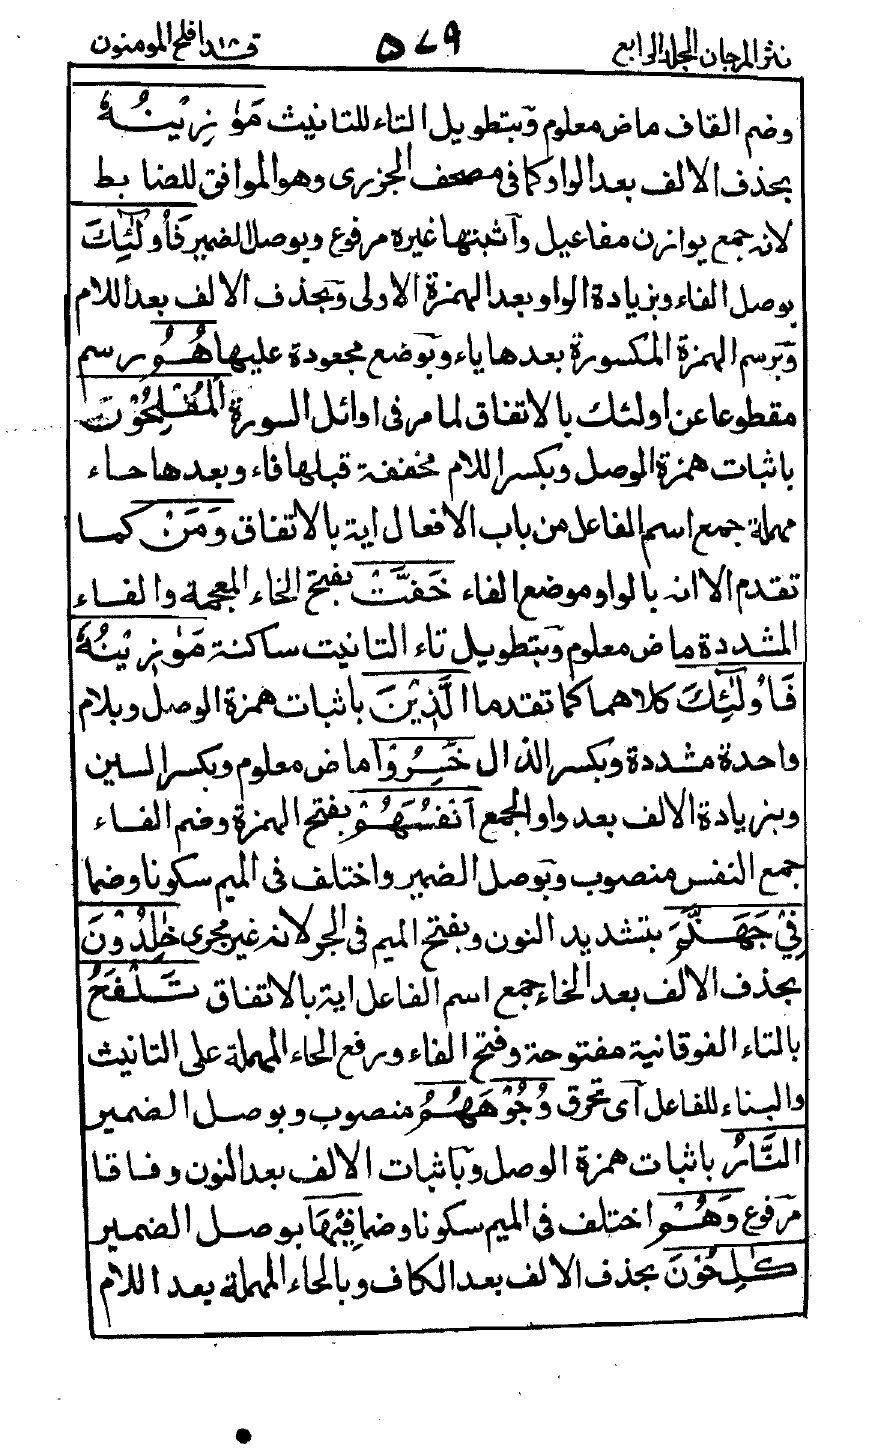 نثر المرجان المجلد الرابع ٥٧٩ قد افلح ١٨ المومنون
وضم القاف ماض معلوم وبتطويل التاء للتانيث مَوٰزِيْنُهٗ
بحذف الالف بعد الواو كما فى مصحف الجزرى وهو الموافق للضابط
لانه جمع يوازن مفاعيل وآثبتها غيره مرفوع وبوصل الضمير فَاُولٰٓئِكَ
بوصل الفاء وبزيادة الواو بعد الهمزة الاولى وبحذف الالف بعد اللام
وبرسم الهمزة المكسورة بعدها ياء وبوضع مجعودة عليها هُمُ رسم
مقطوعا عن اولئك بالاتفاق لما مر فى اوائل السورة الْمُفْلِحُوْنَ
باثبات همزة الوصل وبكسر اللام مخففة قبلها فاء وبعدها حاء
مهملة جمع اسم الفاعل من باب الافعال اية بالاتفاق وَمَنْ كما
تقدم الا انه بالواو موضع الفاء خَفَّتْ بفتح الخاء المعجمة والفاء
المشددة ماض معلوم وبتطويل تاء التانيث ساكنة مَوٰزِيْنُهٗ
فَاُولٰٓئِكَ كلاهما كما تقدما الَّذِيْنَ باثبات همزة الوصل وبلام
واحدة مشددة وبكسر الذال خَسِرُوْا ماض معلوم وبكسر السين
وبزيادة الالف بعد واو الجمع اَنْفُسَهُمْ بفتح الهمزة وضم الفاء
جمع النفس منصوب وبوصل الضمير واختلف فى الميم سكونا وضما
فِيْ جَهَنَّمَ بتشديد النون وبفتح الميم فى الجر لانه غير مجرى خٰلِدُوْنَ
بحذف الالف بعد الخاء جمع اسم الفاعل اية بالاتفاق تَلْفَحُ
بالتاء الفوقانية مفتوحة وفتح الفاء ورفع الحاء المهملة على التانيث
والبناء للفاعل آى تحرق وُجُوْهَهُمُ منصوب وبوصل الضمير
النَّارُ باثبات همزة الوصل وباثبات الالف بعد النون وفاقا
مرفوع وَهُمْ اختلف فى الميم سكونا وضما فِيْهَا بوصل الضمير
كٰلِحُوْنَ بحذف الالف بعد الكاف وبالحاء المهملة بعد اللام